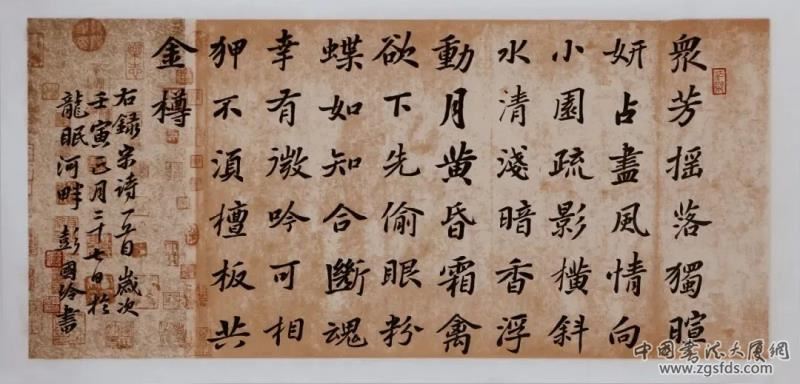 衆芳摇落獨暄
妍占盡風情向
小園疏影橫斜
水清淺暗香浮
動月黄昏霜禽
欲下先偷眼粉
蝶如知合斷魂
幸有微吟可相
狎不須檀板共
金樽
右錄宋詩一首 歲次
壬寅正月二十七日於
龍眠河畔 彭國玲書
中國書法大厦網
www.zgsfds.com